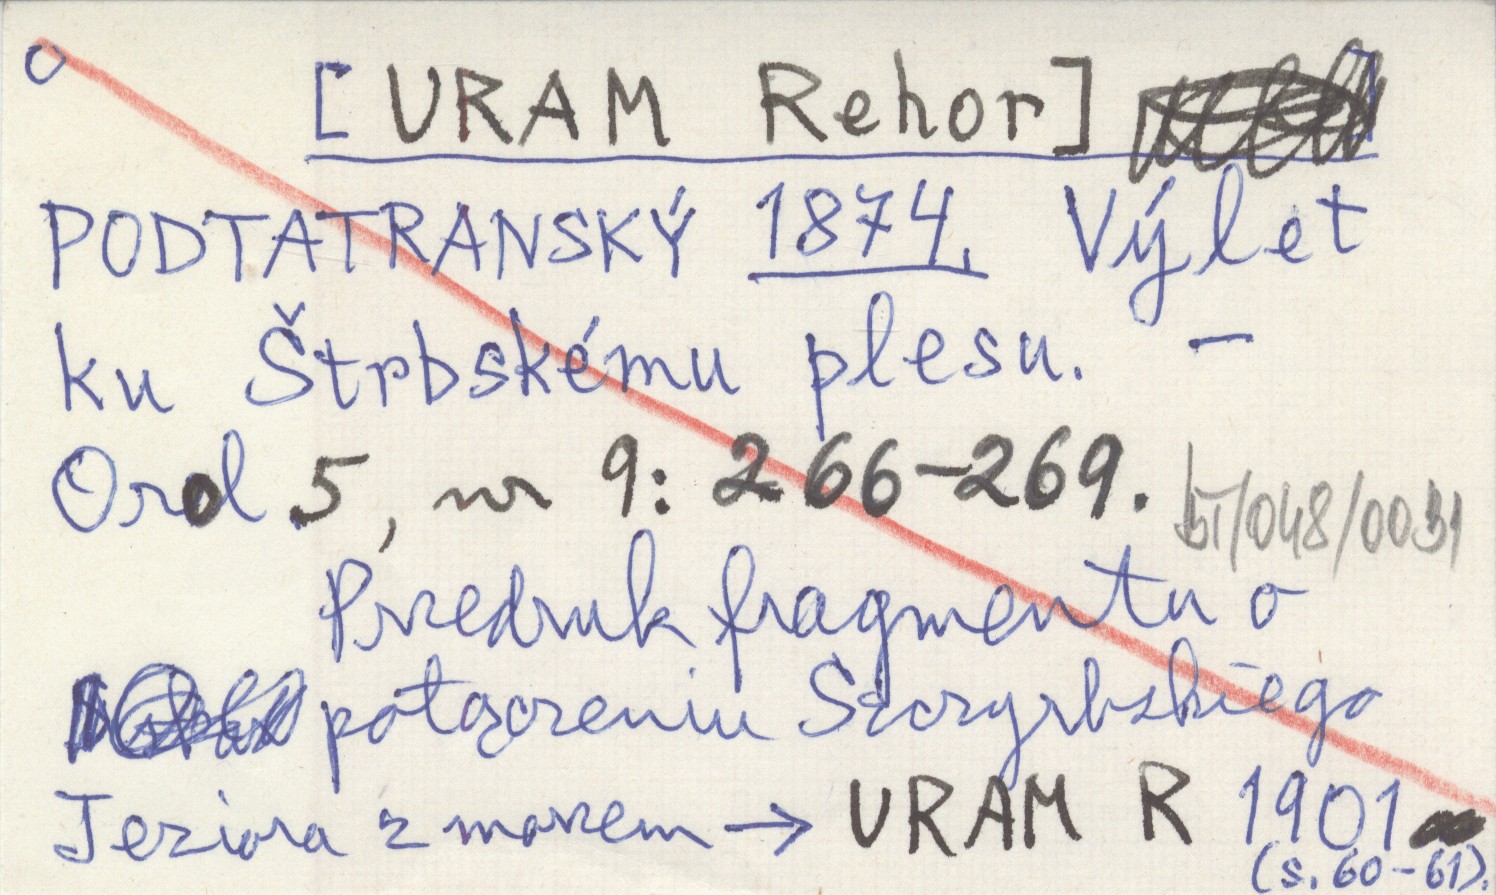 [URAM Rehor]
PODTATRANSKÝ 1874. Výlet
ku Štrbskému plesu. –
Orol 5, nr 9: 266–269.
Przedruk fragmentu o
połączeniu Szczyrbskiego
Jeziora z morzem → URAM R 1901
(s. 60–61).